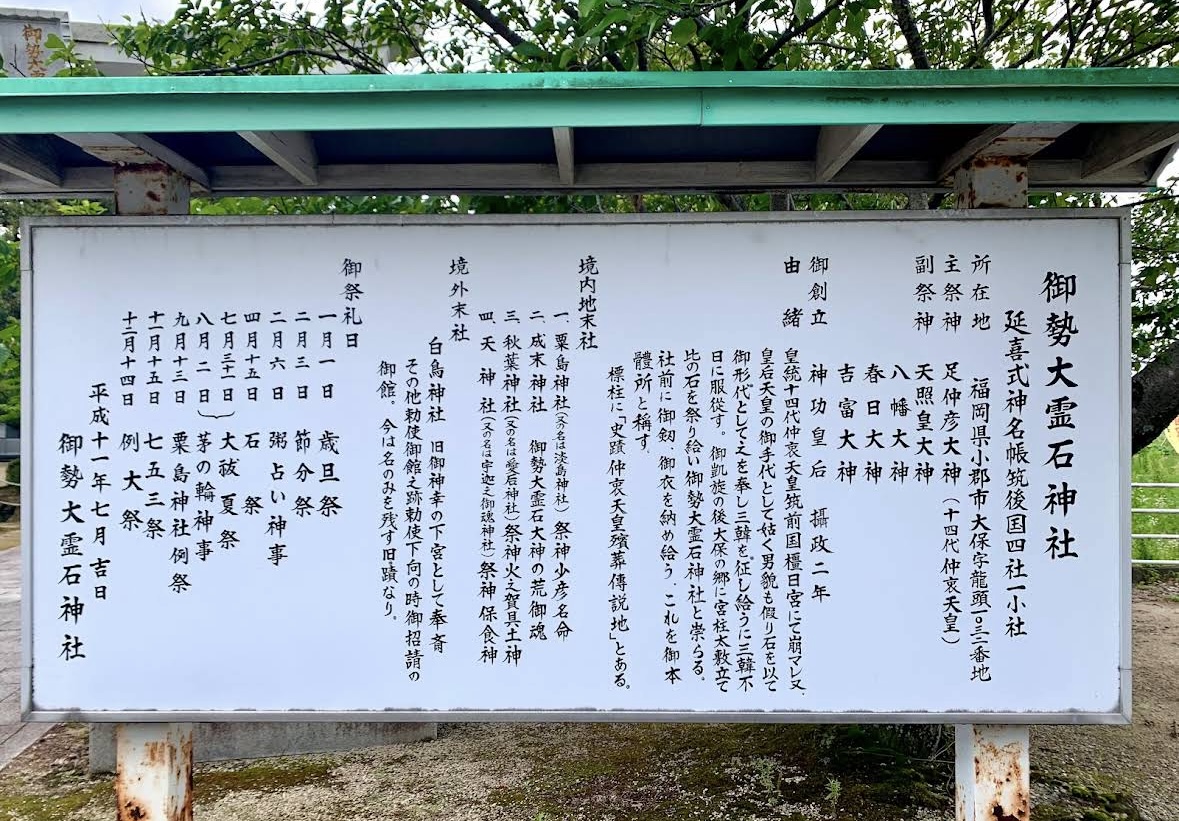 御勢大霊石神社
延喜式神名帳筑後国四社一小社
所在地　福岡県小郡市大保字龍頭一〇三二番地
主祭神　足仲彦大神（十四代仲哀天皇）
副祭神　天照皇大神
八幡大神
春日大神
吉富大神
御創立　神功皇后　攝政二年
由緒　皇統十四代仲哀天皇筑前国橿日宮にて崩マレ又、
皇后天皇の御手代として姑く男貌も假り石を以て
御形代として之を奉し三韓を征し給うに三韓不
日に服従す。御凱旋の後大保の郷に宮柱太敷立て
比の石を祭り給い御勢大霊石神社と崇らる。
社前に御剱、御衣を納め給う、これを御本
體所と稱す、
標柱に「史蹟 仲哀天皇殯葬傳説地」とある。
境内地末社
一、粟島神社（亦名は淡島神社）祭神少彦名命
二、成末神社　御勢大霊石大神の荒御魂
三、秋葉神社（又の名は愛宕神社）祭神火之賀具土神
四、天神社（又の名は宇迦之御魂神社）祭神保食神
境外末社
白鳥神社　旧御神幸の下宮として奉斎
その他勅使御館之跡勅使下向の時御招請の
御館、今は名のみを残す旧蹟なり。
御祭礼日
一月一日　歳旦祭
二月三日　節分祭
二月六日　粥占い神事
四月十五日　石祭
七月三十一日　大祓夏祭
八月二日　茅の輪神事
九月十三日　粟島神社例祭
十一月十五日　七五三祭
十二月十四日　例大祭
平成十一年七月吉日
御勢大霊石神社
御勢大